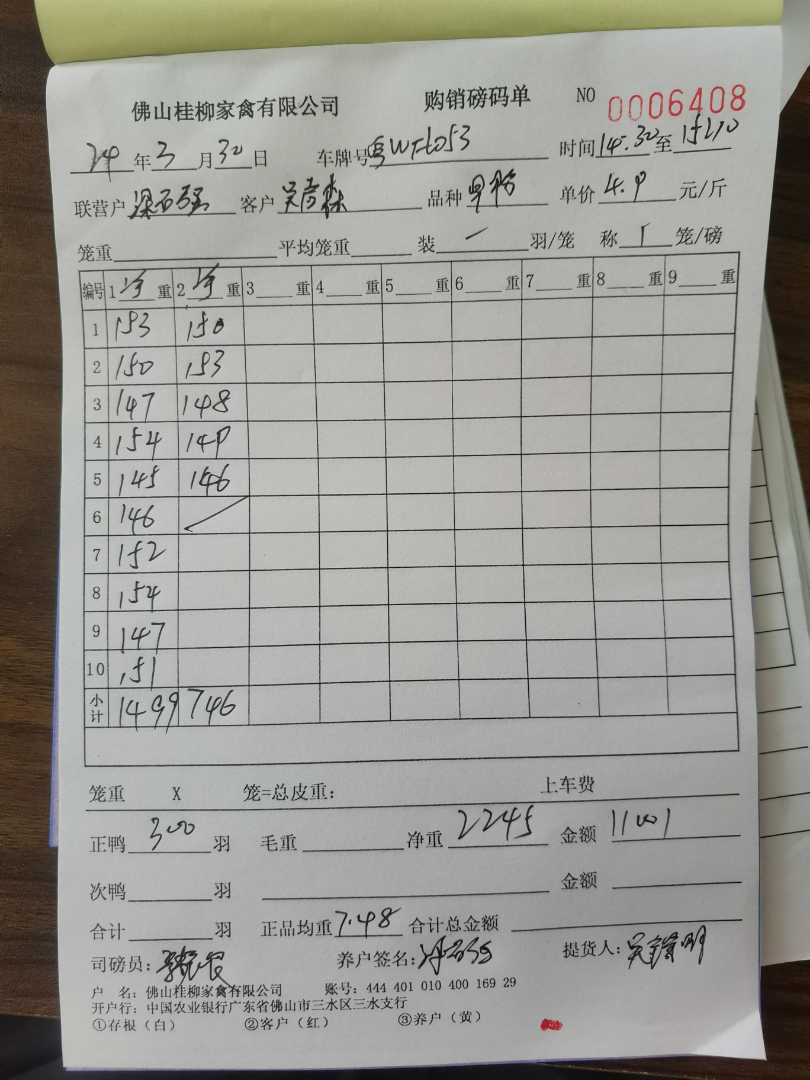 佛山桂柳家禽有限公司 购销磅码单 NO 0006408
24年3月30日 车牌号 时间14:30至15:10
联营户 客户 品种 单价4.9元/斤
笼重 平均笼重 装一羽/笼 称1笼/磅
编号 1净重 2净重 3重 4重 5重 6重 7重 8重 9重
1 153 150
2 150 153
3 147 148
4 154 149
5 145 146
6 146
7 152
8 154
9 147
10 151
小计 1499 746
笼重 X 笼=总皮重: 上车费
正鸭300羽 毛重 净重2245 金额11001
次鸭 羽 金额
合计 羽 正品均重7.48 合计总金额
司磅员: 养户签名: 提货人:
户 名:佛山桂柳家禽有限公司 账号:444 401 010 400 169 29
开户行:中国农业银行广东省佛山市三水区三水支行
①存根(白) ②客户(红) ③养户(黄)